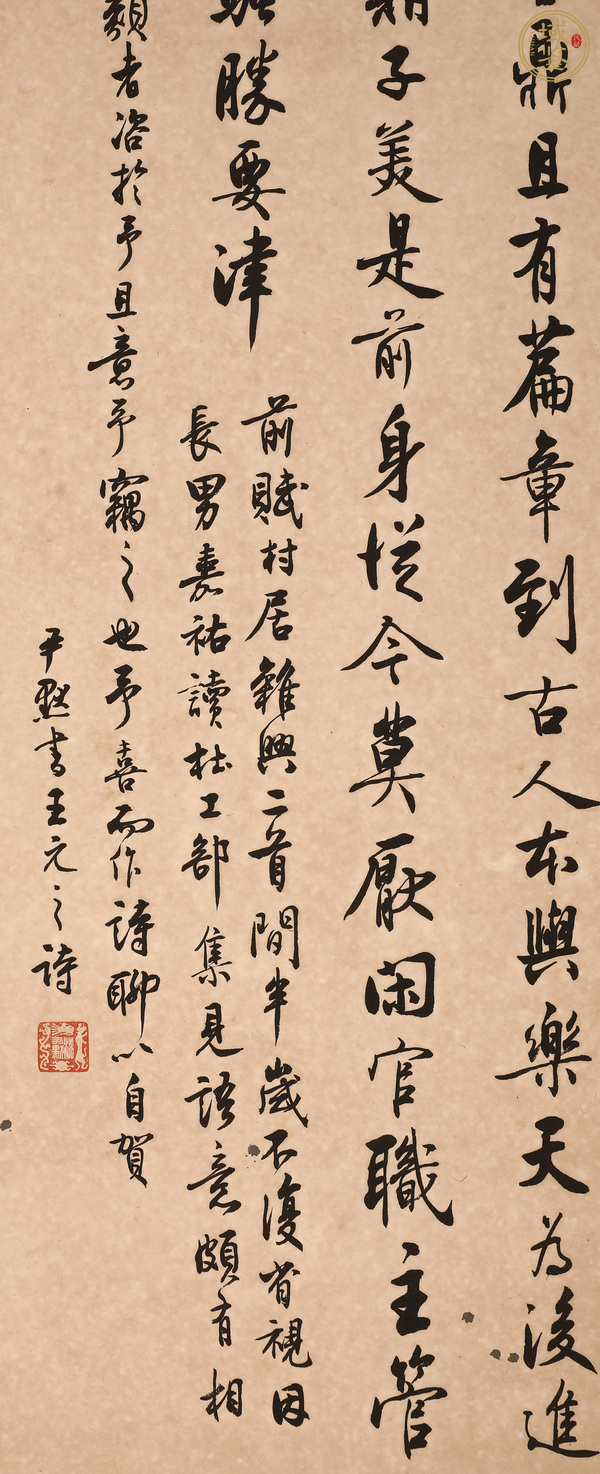 鼎且有篇章到古人本與樂天為後進
期子美是前身從今莫厭閑官職主管
勝要津
前賦村居雜興二首間半歲不復省視因
長男嘉祐讀杜工部集見語意頗有相
類者咨於予且意予竊之也予喜而作詩聊以自賀
尹默書王元之詩